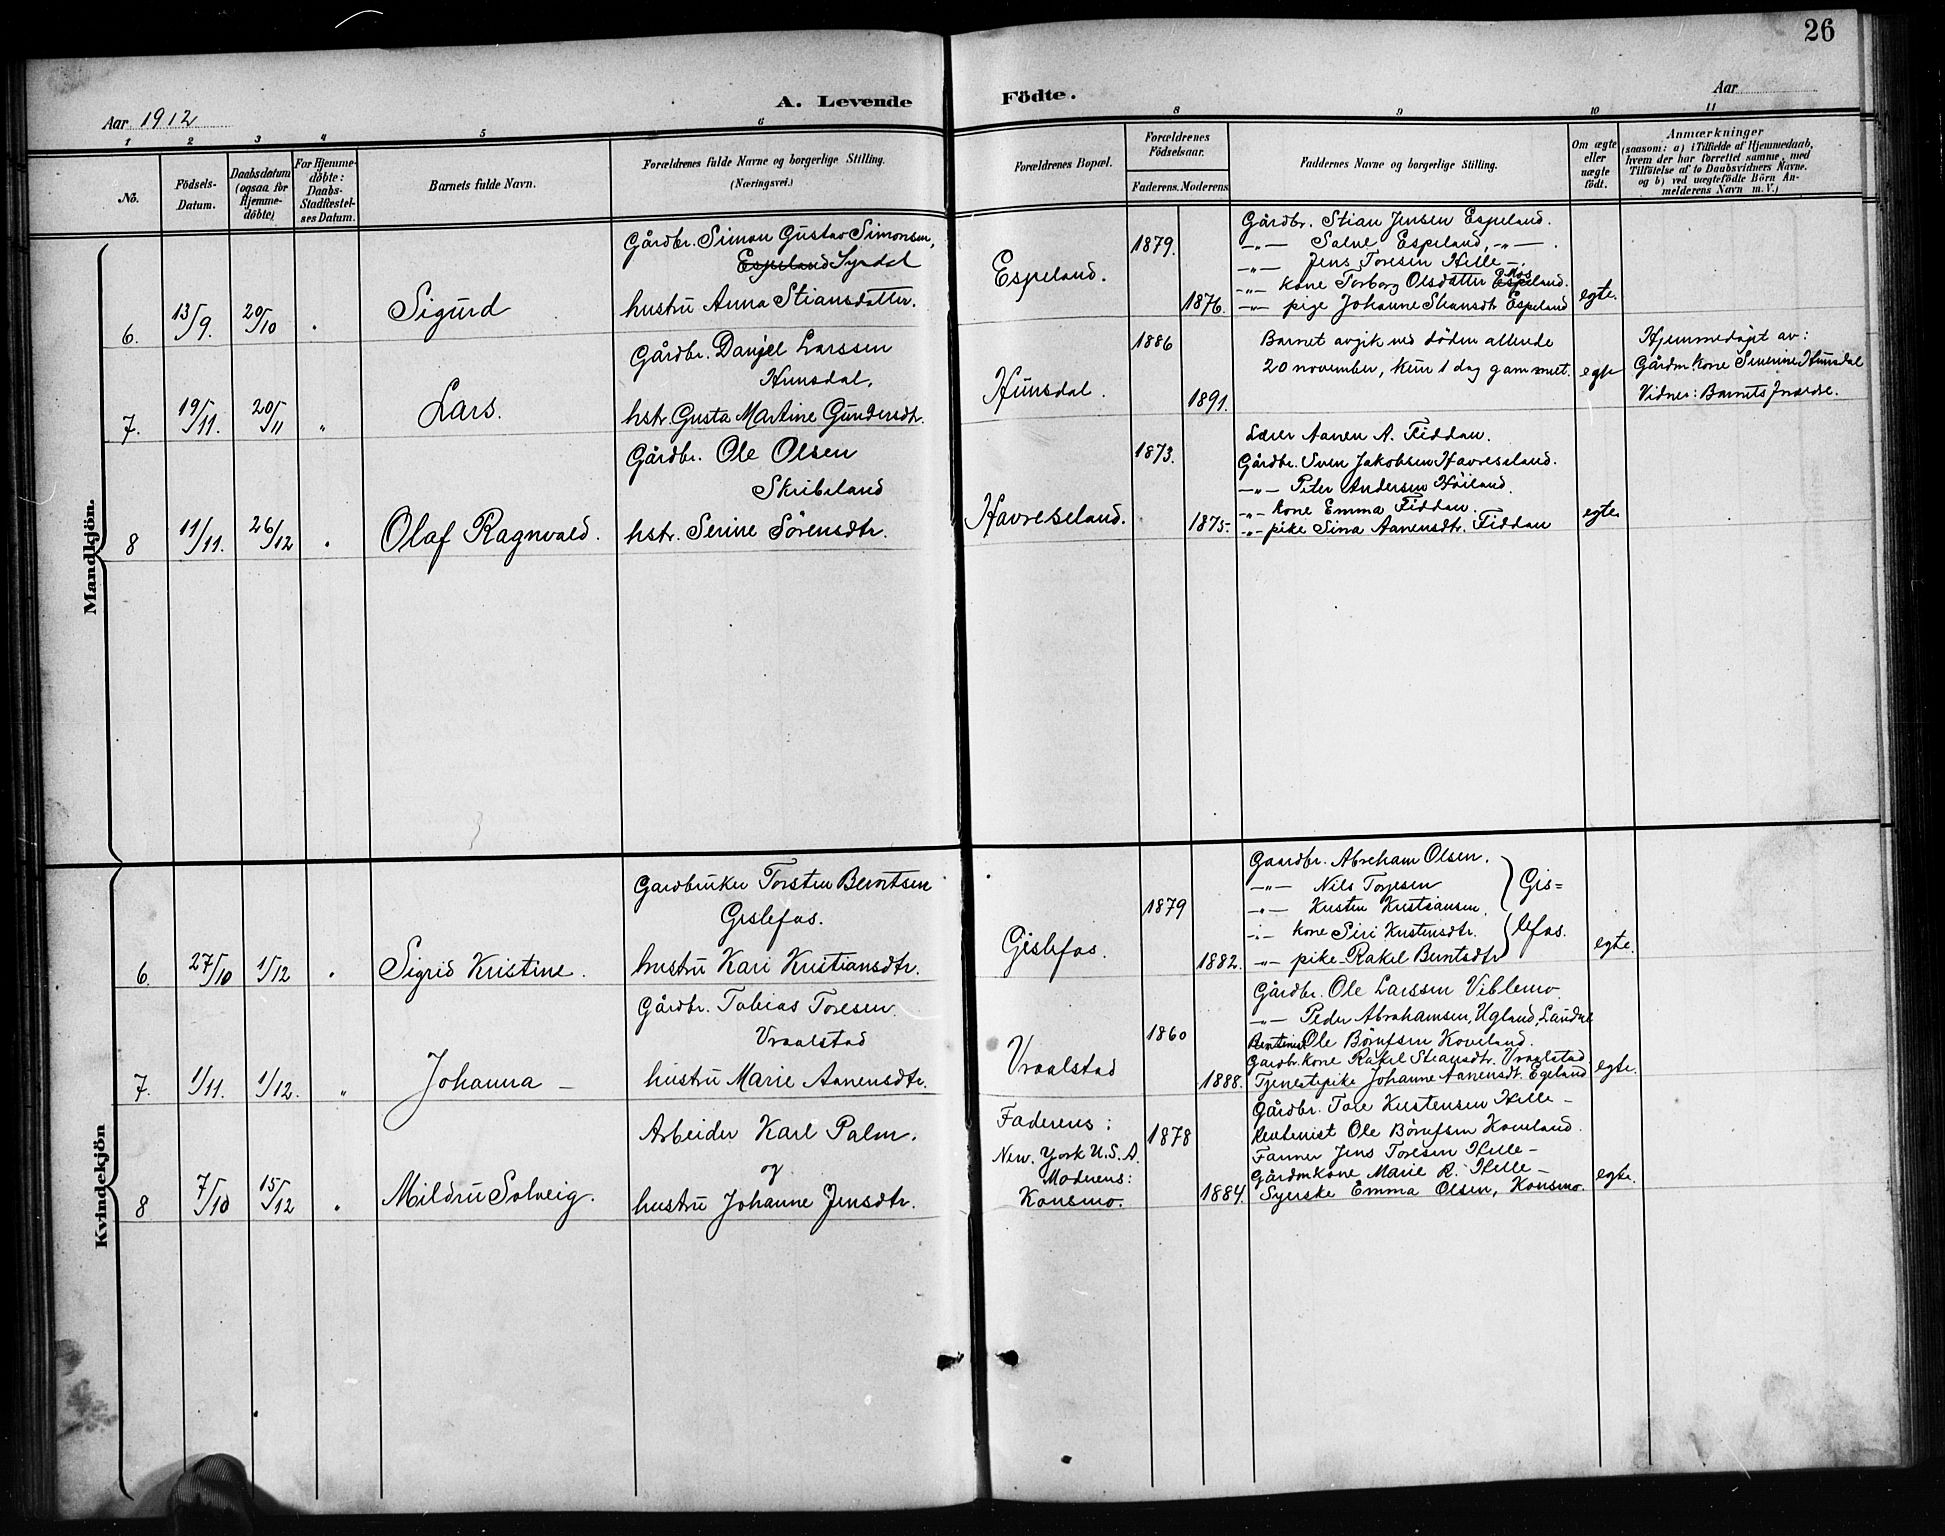 26
Aar 1912
A. Levende Födte.
Aar
1 2 3 4 5 6 8 9 10 11
No.
Födsels-Datum.
Daabsdatum (ogsaa for Hjemme-döbte)
For Hjemme-döbte: Daabs-Stadfæstel-ses Datum.
Barnets fulde Navn.
Forældrenes fulde Navne og borgerlige Stilling. (Næringsvei.)
Forældrenes Bopæl.
Forældrenes Födselsaar.
Faderens. Moderens
Faddernes Navne og borgerlige Stilling.
Om ægte eller uægte født.
Anmærkninger
(saasom: a) i Tilfælde af Hjemmedaab,
hvem der har forrettet samme, med
Tilföielse af to Daabsvidners Navne.
og b) ved uægtefödte Börn An-
melderens Navn m. V.)
Mandkjön.
6. 13/9. 20/10 "
Sigurd
Gårdbr. Simon Gustav Simonsen,
Espeland Syrdal
hustru Anna Stiansdatter.
Espeland.
1879.
1876.
Gårdbr. Stian Jensen Espeland.
-"- Salve Espeland, -"-.
-"- Jens Toresen Hille -.
-"- kone Torborg Olsdatter Espeland.
-"- pige Johanne Stiansdt. Espeland
egte.
7. 19/11. 20/11 "
Lars.
Gårdbr. Danjel Larssen
Hunsdal,
hstr. Gusta Martine Gundersdtr.
Hunsdal.
1886
1891.
Barnet avgik ved døden allerede
20 november, kun 1 dag gammelt.
egte
Hjemmedøpt av:
Gårdm. kone Severine Hunsdal
Vidner: Barnets Forældre.
8 11/11. 26/12 "
Olaf Ragnvald.
Gårdbr. Ole Olsen
Skribeland
hstr. Serine Sørensdtr.
Havreseland.
1873.
1875.
Lærer Aanen A. Fiddan.
Gårdbr. Sven Jakobsen Havreseland.
-"- Peter Andersen Höiland.
-"- kone Emma Fiddan.
-"- pike Sina Aanensdtr. Fiddan
egte
Kvindekjön
6. 27/10 1/12 "
Sigrid Kristine.
Gardbruker Torsten Berntsen
Gislefos.
hustru Kari Kristiansdtr.
Gislefos.
1879
1882.
Gaardbr. Abraham Olsen.
-"- Nils Torjesen
-"- Kristen Kristiansen.
-"- kone Siri Kristensdtr.
-"- pike Rakel Berntsdtr
Gis=
lefos.
egte.
7. 1/11. 1/12. "
Johanna -
Gårdbr. Tobias Toresen
Vraalstad
hustru Marie Aanensdtr.
Vraalstad
1860
1888.
Gårdbr. Ole Larssen Viblemo.
-"- Peder Abrahamsen, Ugland, Laudal
Rentenist Ole Börufsen Koveland.
Gardbr.kone Rakel Stiansdtr. Vraalstad
Tjenestepike Johanne Aanensdt. Egeland
egte.
8 7/10 15/12 "
Mildru Solveig.
Arbeider Karl Palm.
og
hustru Johanne Jensdtr.
Faderens:
New. York U.S.A.
Moderens:
Konsmo.
1878
1884.
Gårdbr. Tore Kristensen Hille -
Rentenist Ole Börufsen Koveland.
Farmer Jens Toresen Hille -
Gårdmkone Marie R. Hille -
Syerske Emma Olsen, Konsmo.
egte.